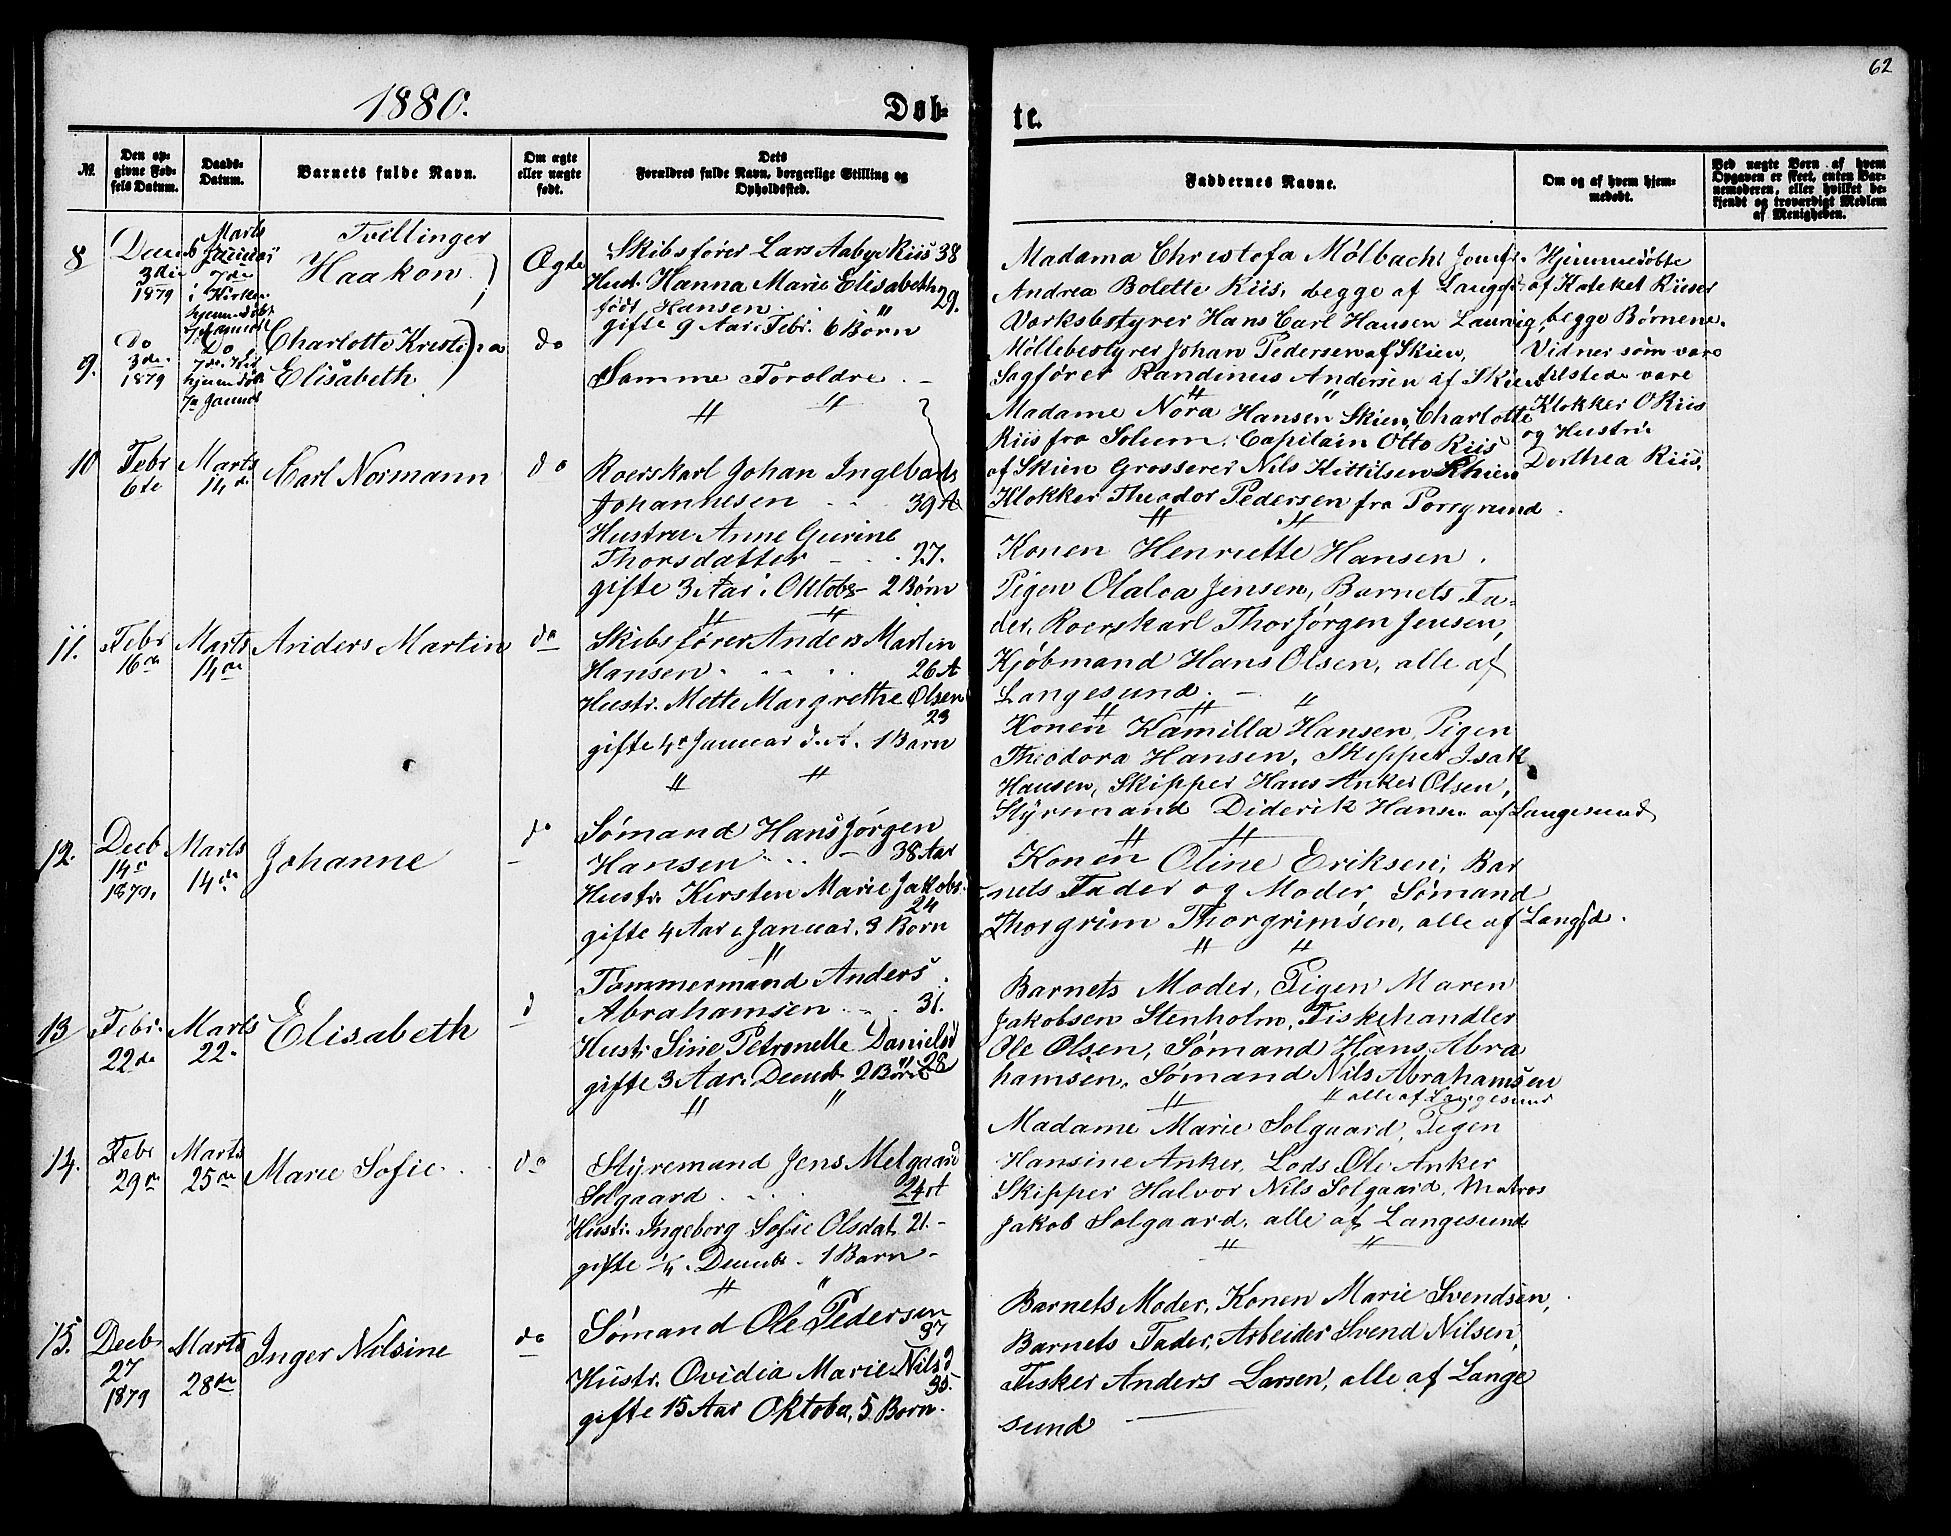 62
1880.
Døb-
te.
№
Den op-
givne Fød-
sels Datum.
Daabs-
Datum.
Barnets fulde Navn.
Om ægte
eller uægte
født.
Dets
Forældres fulde Navn, borgerlige Stilling og
Opholdssted.
Faddernes Navne.
Om og af hvem hjem-
medøbt.
Ved uægte Børn af hvem
Opgaven er skeet, enten Bar-
nemoderen, eller hvilket be-
kjendt og troværdigt Medlem
af Menigheden.
8
Decemb
3die
1879
Marts
Januar
7de
i Kirken
hjemmedøbt
Tvillinger
Haakon
Ægte
Skibsfører Lars Aabye Riis 38
Hust. Hanna Marie Elisabeth
født Hansen 29.
gifte 9 Aar i Febr. 6 Børn
Madama Christofa Mølbach, Jomfr.
Andrea Bolette Riis, begge af Langes.
Værksbestyrer Hans Carl Hansen Laurvig,
Møllebestyrer Johan Pedersen af Skien,
Sagfører Randinus Andersen af Skien
Hjemmedøbte
af Kateket Rieser
begge Børnene.
Vidner som vare
tilstede vare
Klokker O Riis
og Hustru
Dorthea Riis,
9.
do
3die
1879
Do
7de
hjemdøbt
7de Januar
Charlotte Kristina
Elisabeth
do
Samme Forældre. –
〃 〃
Madame Nora Hansen Skien, Charlotte
Riis fra Solum, Capitain Otto Riis
af Skien Grosserer Nils Kittilsen Skien
Klokker Theodor Pedersen fra Porsgrund.
〃 〃
10
Febr
6te
Marts
14de
Carl Normann
do
Roerskarl Johan Ingebrets
Johannesen 39 A
Hustru Anne Gurine
Thorsdatter – . . 27.
gifte 3 Aar i Oktobr – 2 Børn
〃 〃
Konen Henriette Hansen.
Pigen Olalea Jensen, Barnets Fa-
der, Roerskarl Thor Jørgen Jensen,
Kjøbmand Hans Olsen, alle af
Langesund. – 〃
11.
Febr
16de
Marts
14de
Anders Martin
do
Skibsfører Anders Martin
Hansen . . . . 26 A
Hustr. Mette Margrethe Olsen
23
gifte 4de Januar d. A. 1 Barn
〃 〃
Konen Kamilla Hansen, Pigen
Theodora Hansen, Skipper Isak
Hansen, Skipper Hans Anker Olsen,
Styrmand Diderik Hansen af Langesund
〃 〃
12.
Decb
14de
1879.
Marts
14de
Johanne
do
Sømand Hans Jørgen
Hansen . . . – 38 Aar
Hustr. Kirsten Marie Jakobs.
24
gifte 4 Aar i Januar. 3 Børn
〃
Konen Oline Eriksen, Bar
nets Fader og Moder, Sømand
Thorgrim Thorgrimsen, alle af Langsd.
〃 〃
13
Febr.
22de
Marts
22.
Elisabeth
d
Tømmermand Anders
Abrahamsen . . . 31.
Hustr. Sirie Petronelle Danielsd
28
gifte 3 Aar i Decmb. 2 Børn
〃 〃
Barnets Moder, Pigen Maren
Jakobsen Stenholm, Fiskehandler
Ole Olsen, Sømand Hans Abra
hamsen, Sømand Nils Abrahamsen
〃 〃 alle af Langesund
14.
Febr
29de
Marts
25de
Marie Sofie . .
do
Styremand Jens Melgaard
Solgaard . . . . 24 A
Hustr. Ingeborg Sofie Olsdat. 21. –
gifte 1/4 . Decmb. – 1 Barn –
〃 〃
Madame Marie Solgaard, Pigen
Hansine Anker, Lods Ole Anker
Skipper Halvor Nils Solgaard, Matros
Jakob Solgaard, alle af Langesund
〃 〃
15.
Decb
27
1879
Marts
28de
Inger Nilsine
do
Sømand Ole Pedersen
37
Hustr. Ovidia Marie Nilsd
35.
gifte 15 Aar Oktober, 5 Børn.
Barnets Moder, Konen Marie Svendsen,
Barnets Fader, Arbeider Svend Nilsen,
Fisker Anders Larsen, alle af Lange
sund –